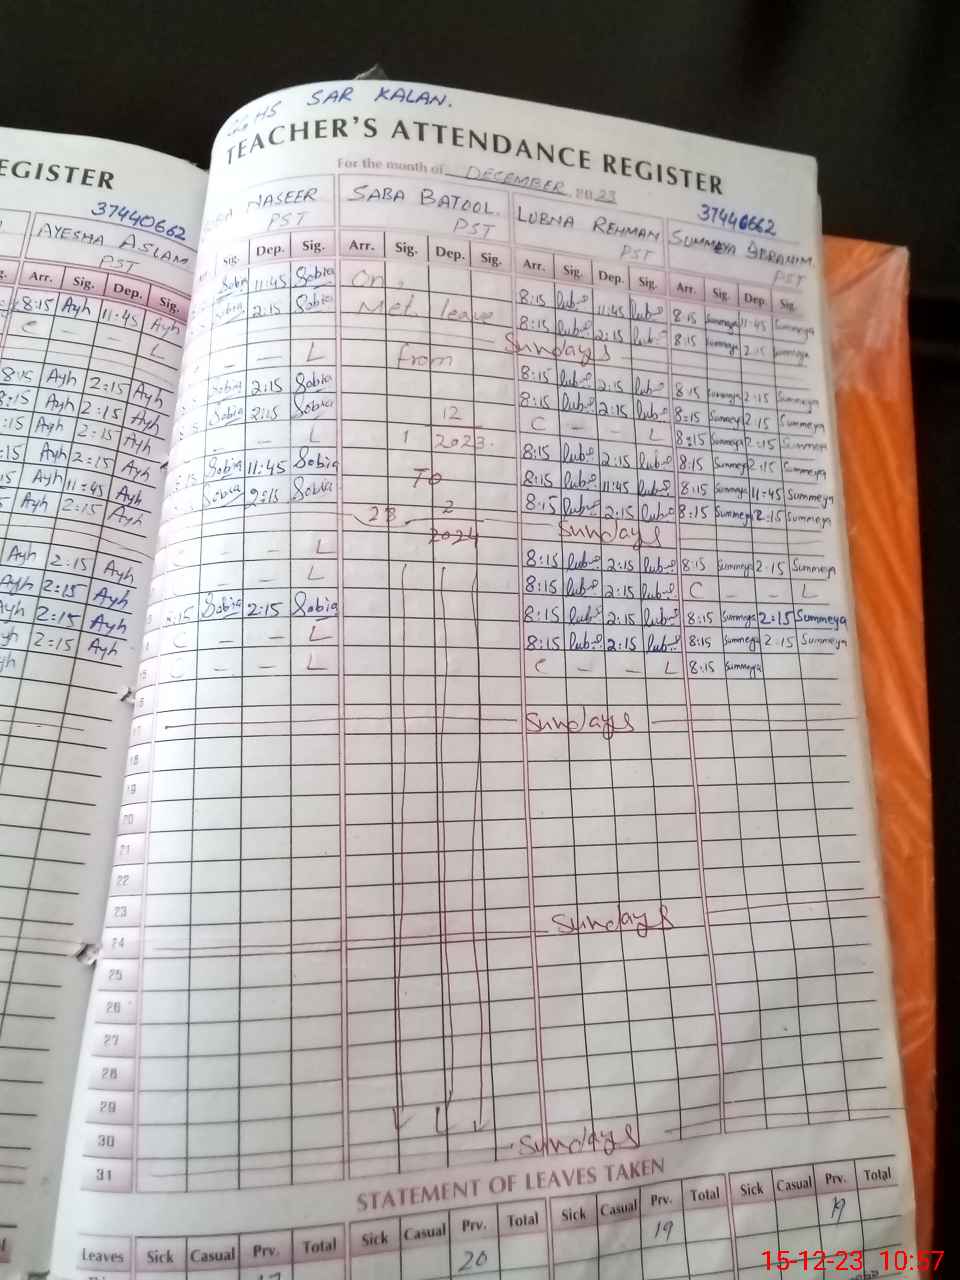 HS SAR KALAN.
TEACHER'S ATTENDANCE REGISTER
For the month of DECEMBER 2023
EGISTER
37440662
AYESHA ASLAM
PST
Arr. Sig. Dep. Sig.
8:15 Ayh 11:45 Ayh
C - - L
8:15 Ayh 2:15 Ayh
8:15 Ayh 2:15 Ayh
:15 Ayh 2:15 Ayh
15 Ayh 2:15 Ayh
15 Ayh 11:45 Ayh
5 Ayh 2:15 Ayh
Ayh 2:15 Ayh
Ayh 2:15 Ayh
Ayh 2:15 Ayh
Ayh 2:15 Ayh
NASEER
PST
Sig. Dep. Sig.
Sobia 11:45 Sobia
Sobia 2:15 Sobia
- L
Sobia 2:15 Sobia
Sobia 2:15 Sobia
- L
8:15 Sobia 11:45 Sobia
Sobia 2:15 Sobia
C - - L
- - L
8:15 Sobia 2:15 Sobia
C - - L
C - - L
SABA BATOOL.
PST
Arr. Sig. Dep. Sig.
On
Met. leave
from
1 12 2023.
To
28 2 2024
LUBNA REHMAN
PST
Arr. Sig. Dep. Sig.
8:15 lub 11:45 lub
8:15 lub 2:15 lub
Sundays
8:15 lub 2:15 lub
8:15 lub 2:15 lub
C - - L
8:15 lub 2:15 lub
8:15 lub 11:45 lub
8:15 lub 2:15 lub
Sundays
8:15 lub 2:15 lub
8:15 lub 2:15 lub
8:15 lub 2:15 lub
8:15 lub 2:15 lub
C - - L
37440662
SUMMEYA IBRAHIM.
PST
Arr. Sig. Dep. Sig.
8:15 Summeya 11:45 Summeya
8:15 Summeya 2:15 Summeya
8:15 Summeya 2:15 Summeya
8:15 Summeya 2:15 Summeya
8:15 Summeya 2:15 Summeya
8:15 Summeya 2:15 Summeya
8:15 Summeya 11:45 Summeya
8:15 Summeya 2:15 Summeya
8:15 Summeya 2:15 Summeya
C - - L
8:15 Summeya 2:15 Summeya
8:15 Summeya 2:15 Summeya
8:15 Summeya
15
16
17 Sundays
18
19
20
21
22
23
24 Sundays
25
26
27
28
29
30
31 Sundays
STATEMENT OF LEAVES TAKEN
Leaves Sick Casual Prv. Total Sick Casual Prv. Total Sick Casual Prv. Total Sick Casual Prv. Total
20 19 19
15-12-23 10:57